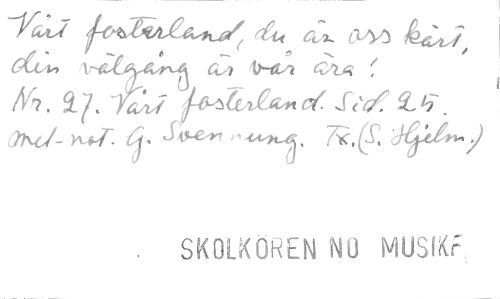 Vårt fosterland, du är oss kärt,
din välgång är vår ära!
Nr. 27. Vårt fosterland. Sid. 25.
mel-not. G. Svennung. Tx. (S. Hjelm.)
SKOLKÖREN NO MUSIKF